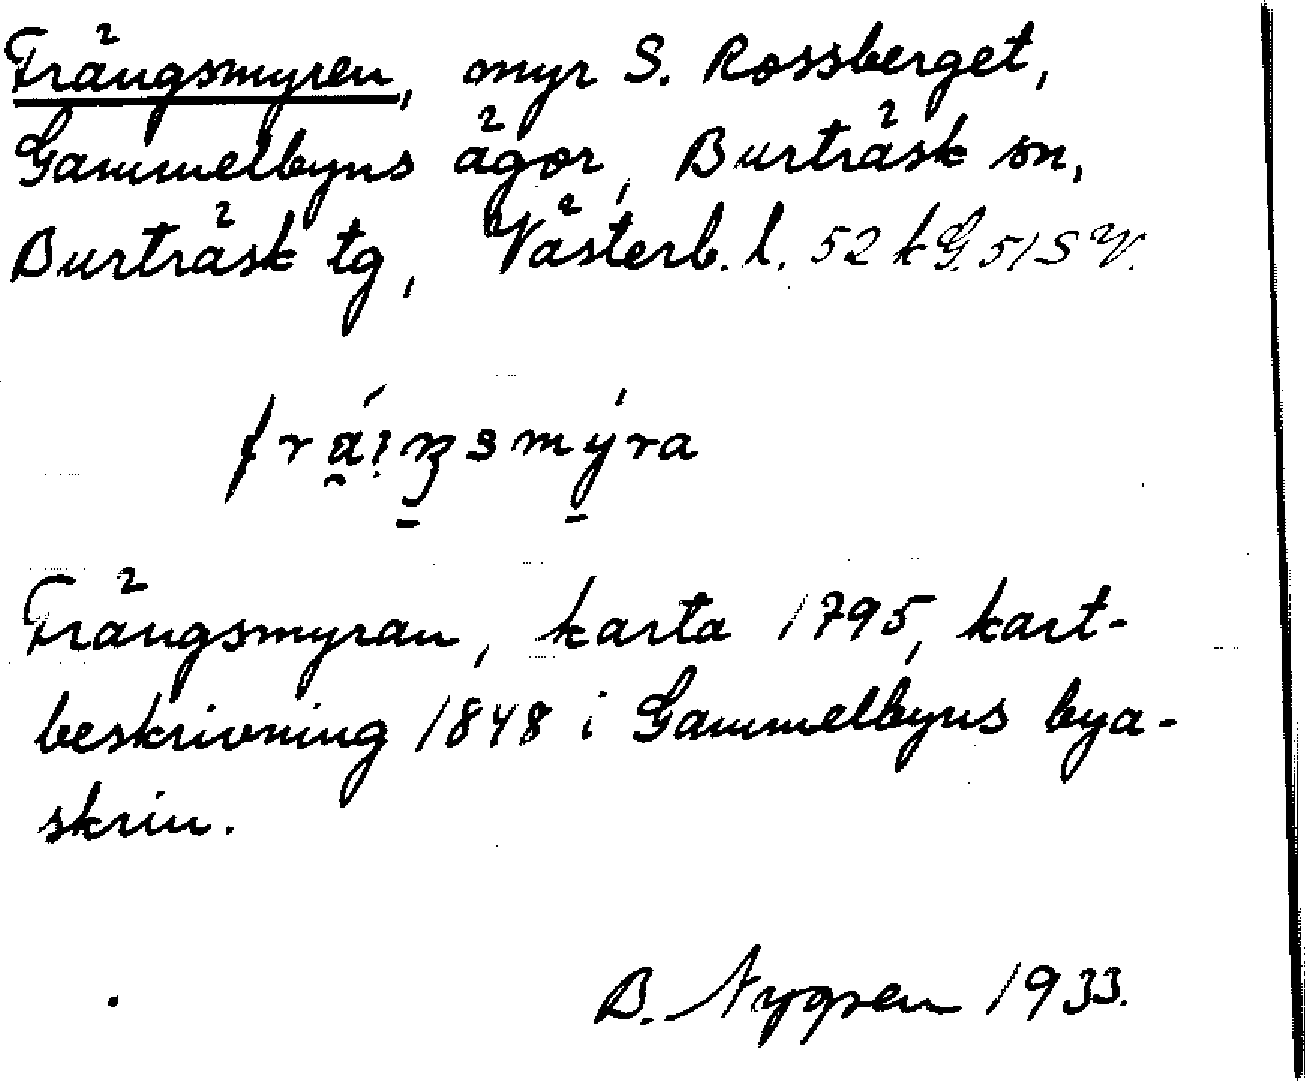 Frängsmyren, myr S. Rossberget,
Gammelbyns ägor, Burträsk sn,
Burträsk tg, Västerb. l. 52 51 S V.
Frängsmyran, karta 1795, kart-
beskrivning 1848 i Gammelbyns bya-
skrin.
B. Nygren 1933.